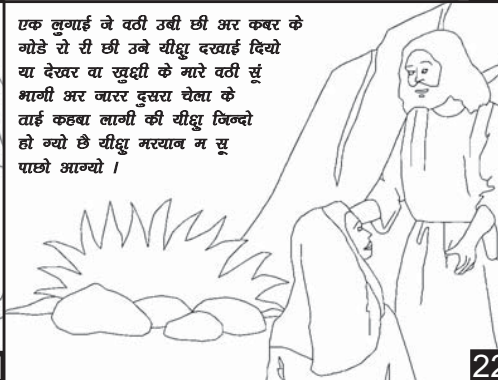 एक लुगाई जे वठी उबी छी अर कबर के
गोडे रो री छी उने यीक्षु दखाई दियो
या देखर वा खुक्षी के मारे वठी सूं
भागी अर जारर दुसरा चेला के
ताई कहबा लागी की यीक्षु जिन्दो
हो ग्यो छै यीक्षु मरयान म सू
पाछो आग्यो ।
22